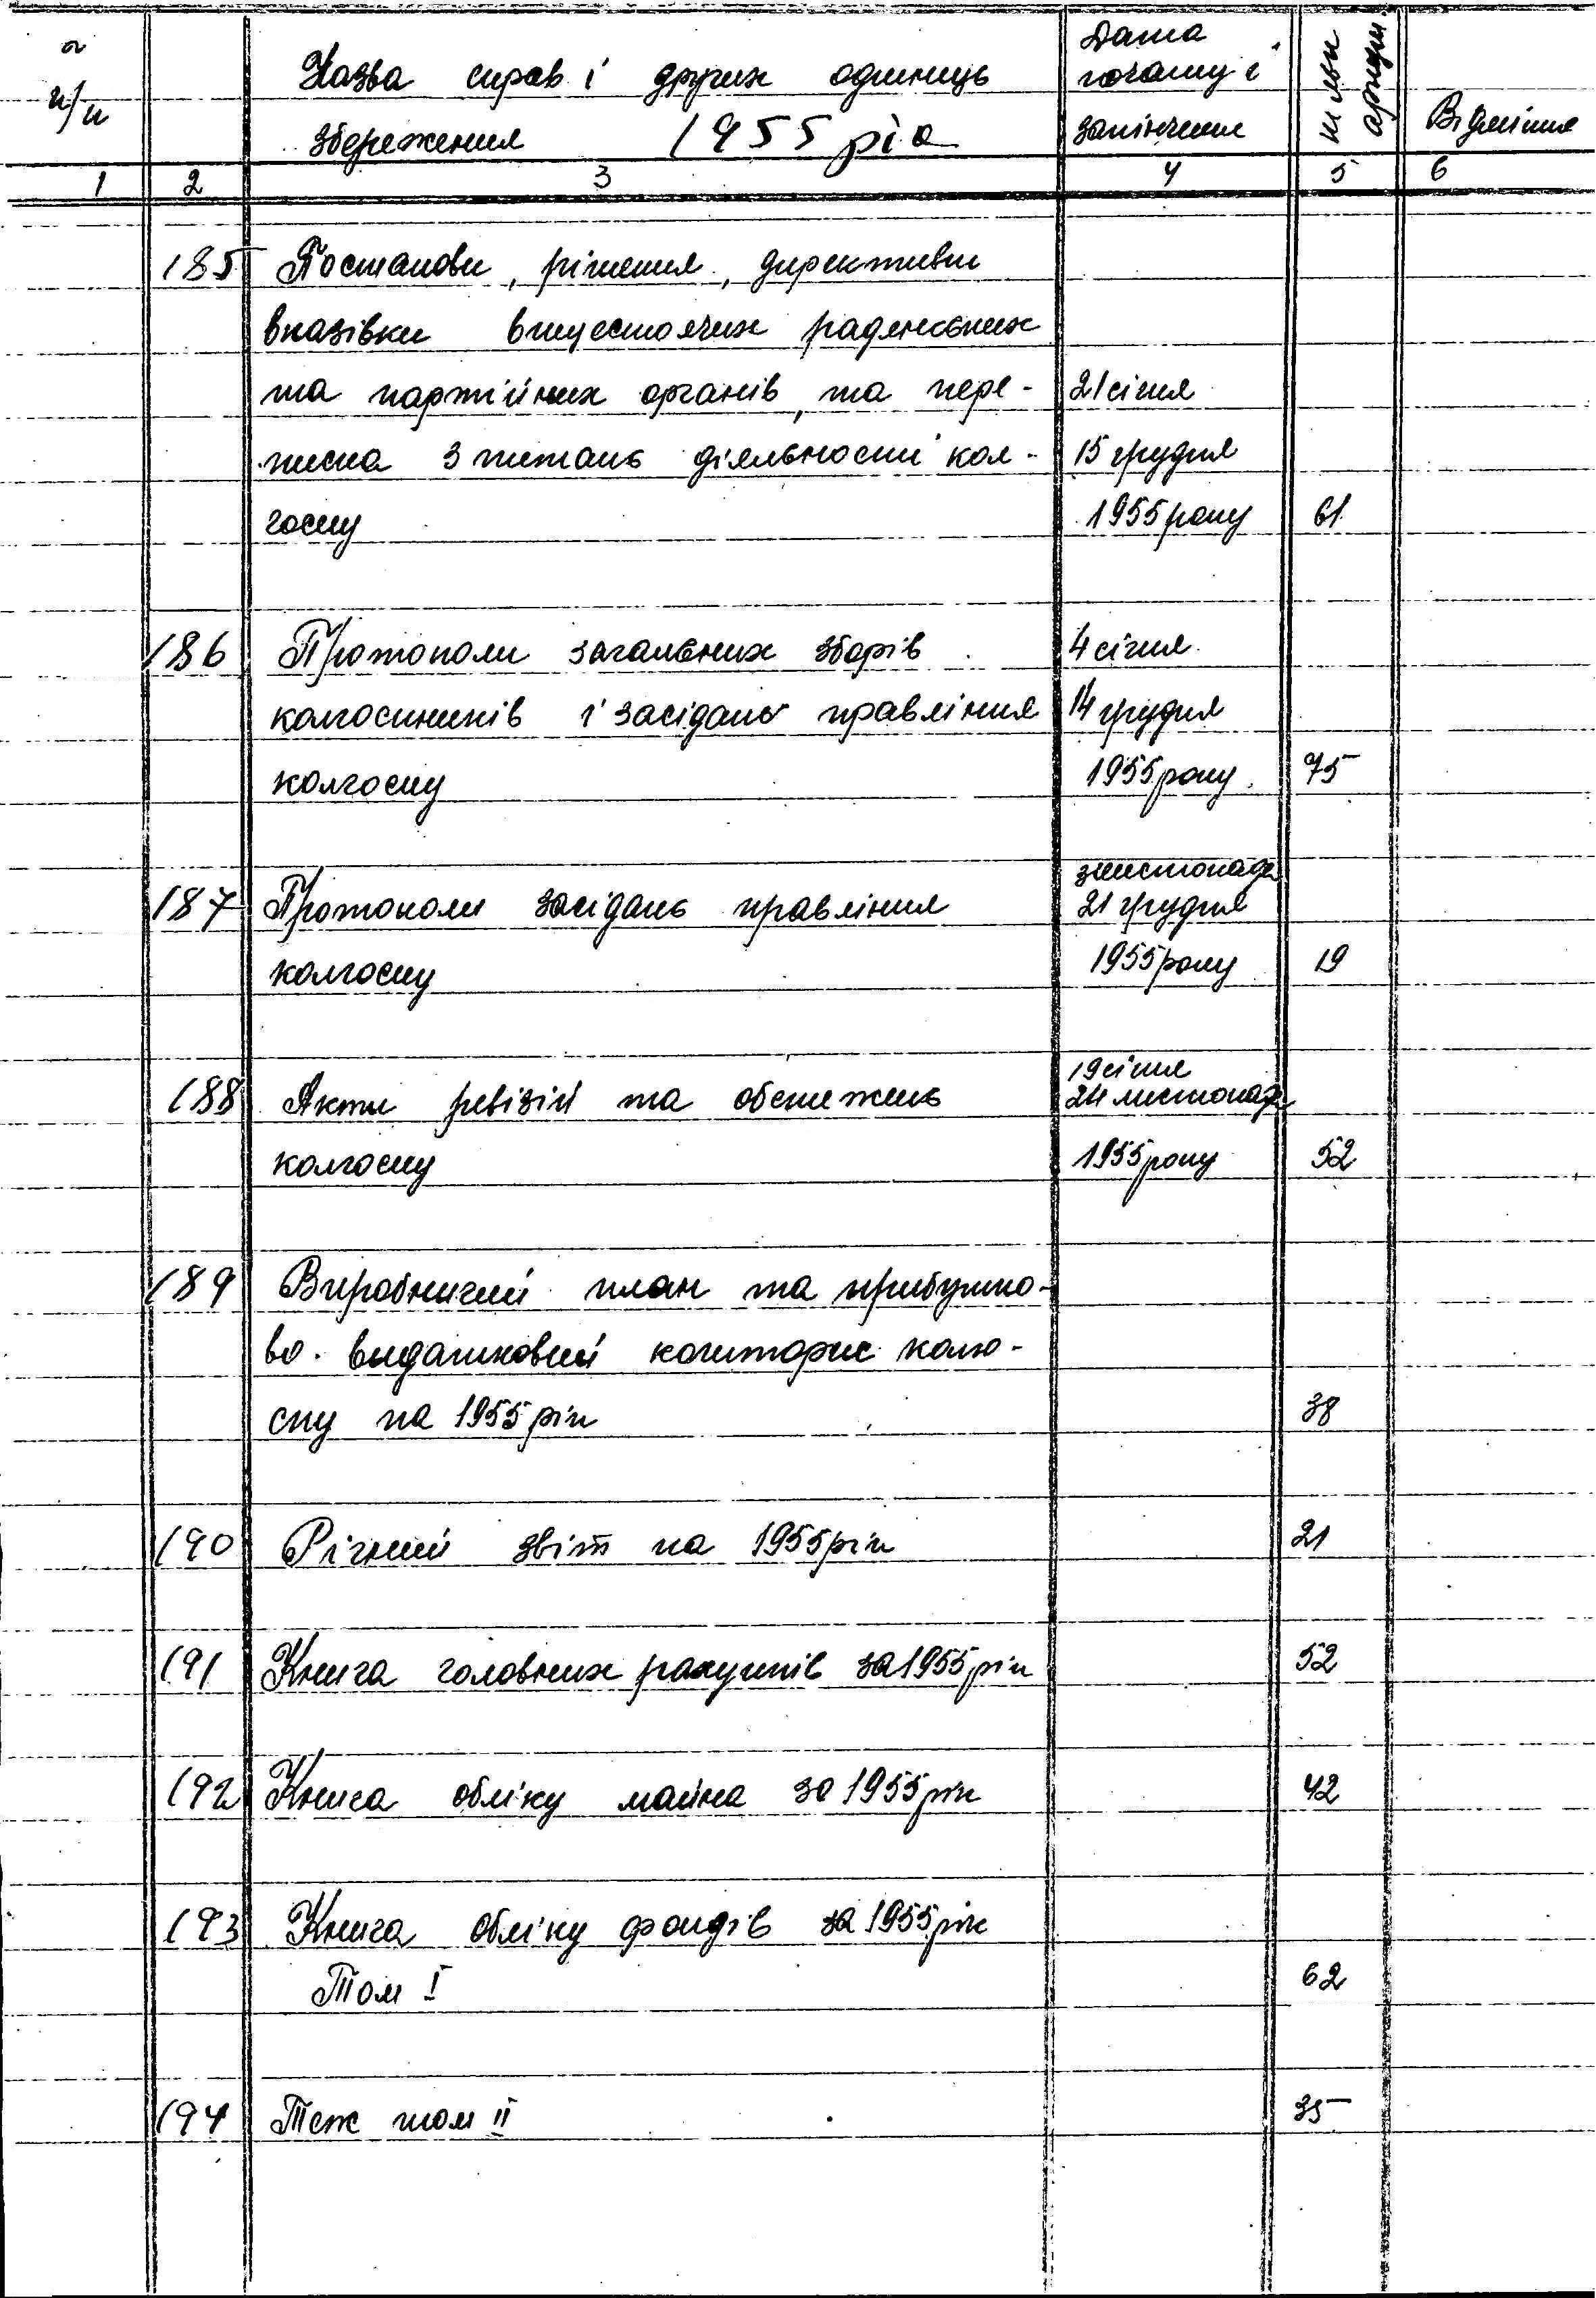 п/п
Назва справ і других одиниць
збереження 1955 рік
Дата
початку і
закінчення
к-льк
аркуш.
Відмітки
1 2 3 4 5 6
185 Постанови, рішення, директиви
вказівки вищестоячих радянських
та партійних органів, та пере- 21 січня
писка з питань діяльності кол- 15 грудня
госпу 1955 року 61
186 Протоколи загальних зборів 4 січня
колгоспників і засідань правління 14 грудня
колгоспу 1955 року 75
3 листопада
187 Протоколи засідань правління 21 грудня
колгоспу 1955 року 19
19 січня
188 Акти ревізій та обстежень 24 листопада
колгоспу 1955 року 52
189 Виробничий план та прибутко-
во-видатковий кошторис колго-
спу на 1955 рік 38
190 Річний звіт на 1955 рік 21
191 Книга головних рахунків за 1955 рік 52
192 Книга обліку майна за 1955 рік 42
193 Книга обліку фондів за 1955 рік
Том I 62
194 Теж том II 35